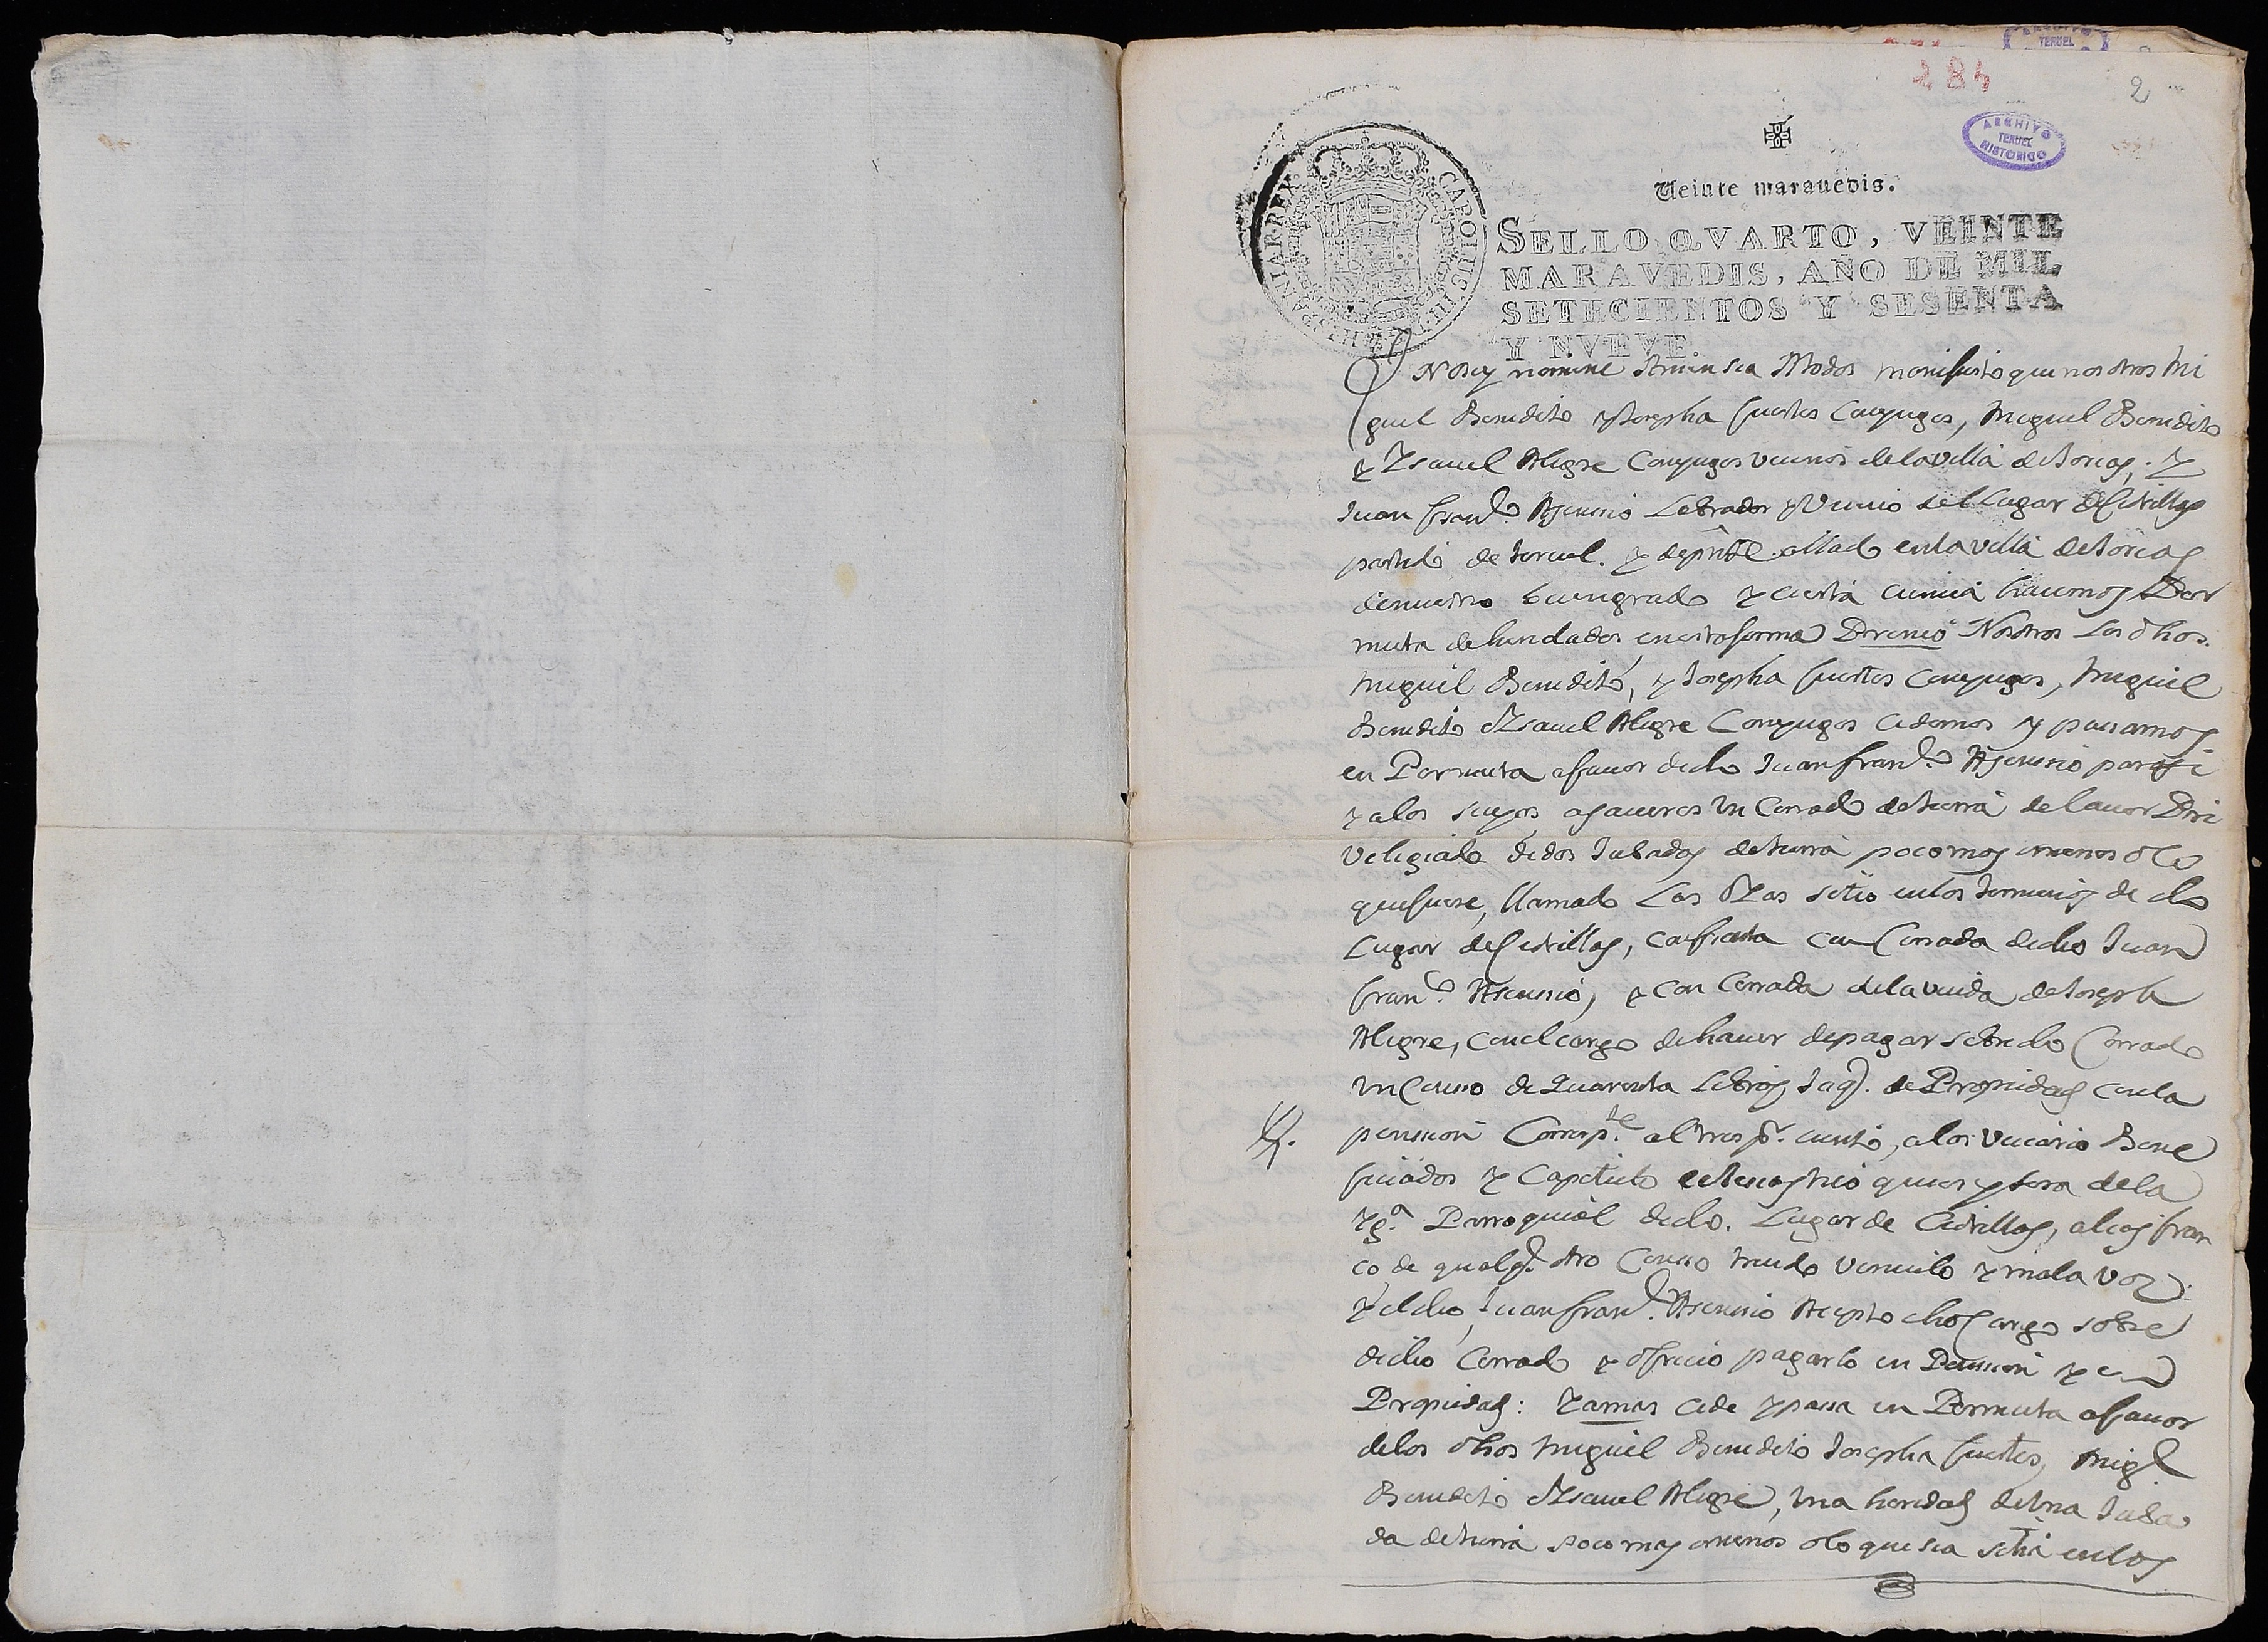 284
2
ARCHIVO
TERUEL
HISTORICO
TERUEL
Veinte marauedis.
CAROLUS III D G HISPANIAR REX
SELLO QVARTO, VEINTE
MARAVEDIS, AÑO DE MIL
SETECIENTOS Y SESENTA
Y NVEVE.
nomine Amen sea A todos manifiesto que nosotros Mi
guel Benedito y Josepha fuertes Conyuges, Miguel Benedito
y Ysauel Alegre Conyuges vecinos de la villa de ; y
Juan franco. Asensio Labrador y Vecino del Lugar de Cedrillas
partido de teruel. y de pnte. allado en la villa de
de nuestro buen grado y cierta ciencia hacemos Per
muta de heredades en esta forma Primo Nosotros los dhos.
Miguel Benedito, y Josepha fuertes Conyuges, Miguel
Benedito Ysauel Alegre Conyuges cedemos y passamos
en Permuta a fauor de dho Juan franco. Asensio para si
y a los suyos, a saueres Vn Cerrado de tierra de lauor Pri
velegiado de dos Jubadas de tierra poco mas o menos o lo
que fuere, llamado Las Ozas sitio en los terminos de dho
Lugar de Cedrillas, confronta con Cerrada de dho Juan
franco. Asensio, y con Cerrada de la viuda de Joseph
Alegre, con el cargo de hauer de pagar sobre dho Cerrado
vn Censo de Quarenta Libras Jaqs. de Propiedad con la
pension Corresp.te al tres pr. ciento, a los Vicario Bene
ficiados y Capitulo eclesiastico que es y sera de la
Ygª. Parroquial de dho. Lugar de Cedrillas, alias fran
co, de qualqr. otro Censo treudo vinculo y mala voz:
y el dho, Juan franco. Asensio Acepto dho Cargo sobre
dicho Cerrado y ofrecio pagarlo en Pension y en
Propiedad: Y a mas cede y passa en Permuta a fauor
de los dhos Miguel Benedito Josepha fuertes, Migl.
Benedito Ysauel Alegre, Vna heredad de Vna Juba
da de tierra poco mas o menos o lo que sea sitia en los